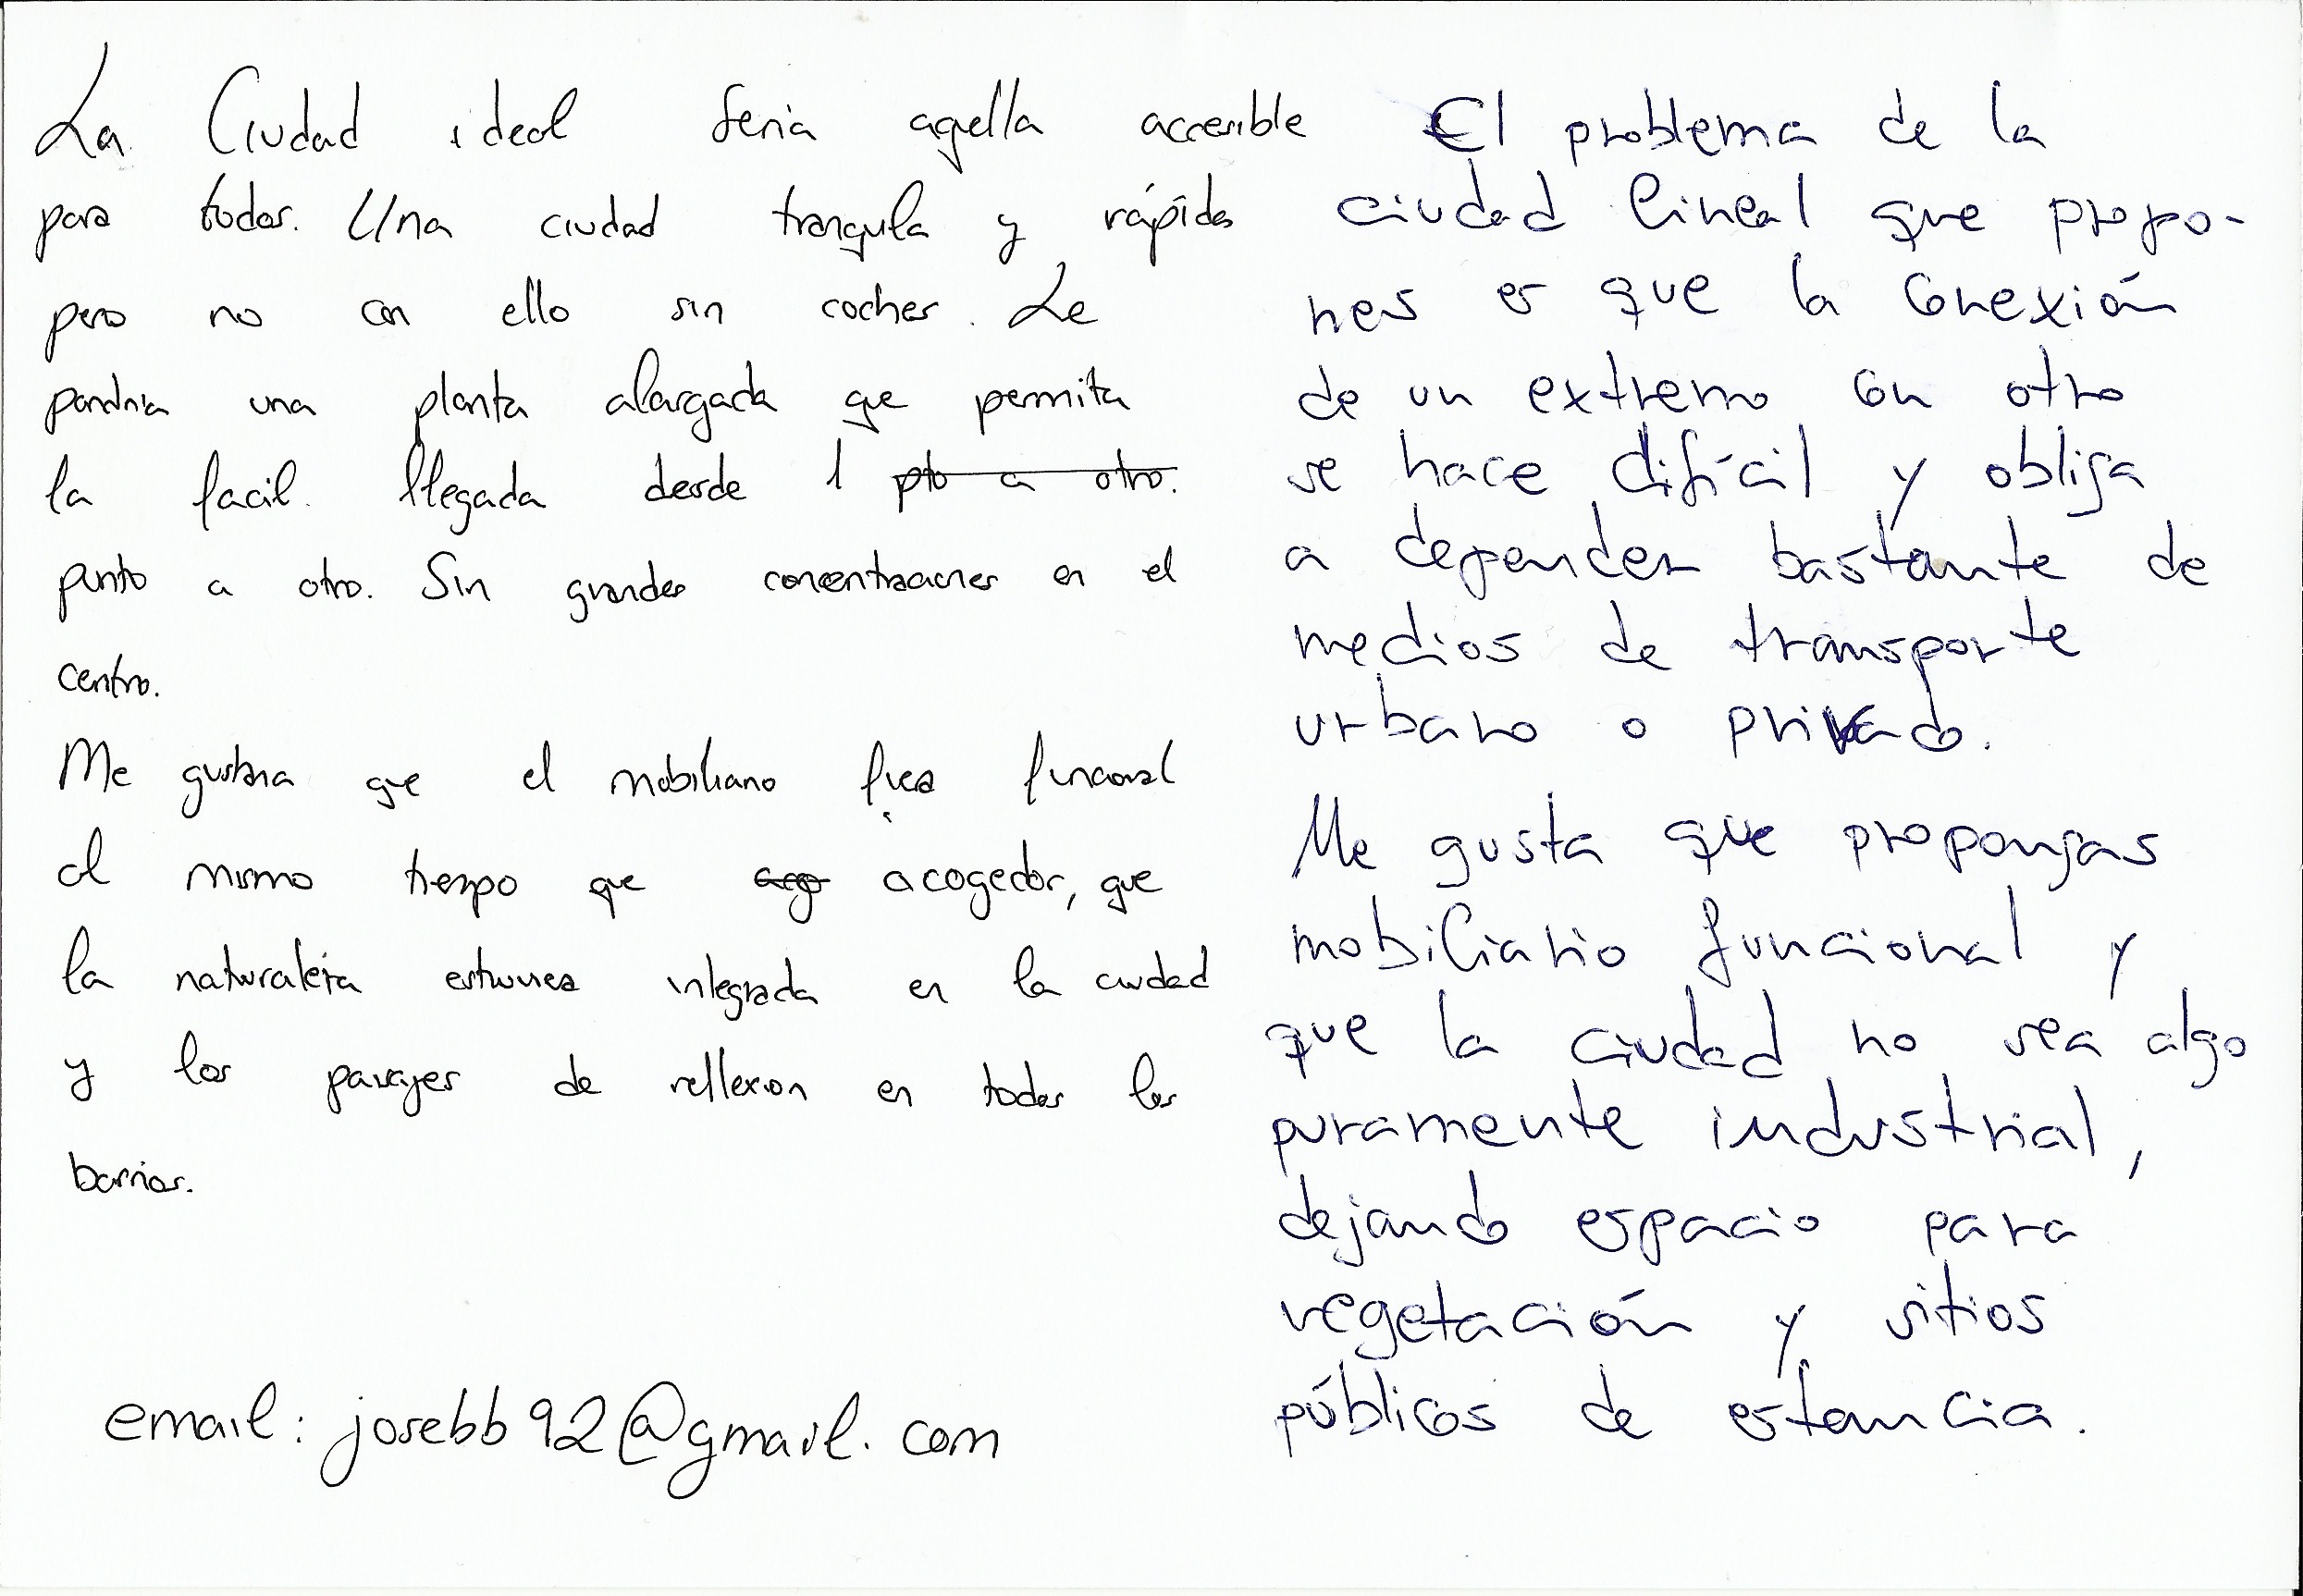 La Ciudad ideal seria aqella accesible
para todos. Una ciudad tranquila y rápida
pero no con ello sin coches. Le
pondria una planta alargada qe permita
la facil. llegada desde 1 pto a otro.
punto a otro. Sin grandes concentraciones en el
centro.
Me gustaria qe el mobiliario fuera funcional
al mismo tiempo que acogedor, que
la naturaleza estuviera integrada en la ciudad
y los parajes de reflexion en todos los
barrios.
email: josebb92@gmail.com
El problema de la
ciudad lineal que propo-
nes es que la conexión
de un extremo con otro
se hace difícil y obliga
a depender bastante de
medios de transporte
urbano o privado.
Me gusta que propongas
mobiliario funcional y
que la ciudad no sea algo
puramente industrial,
dejando espacio para
vegetación y sitios
públicos de estancia.